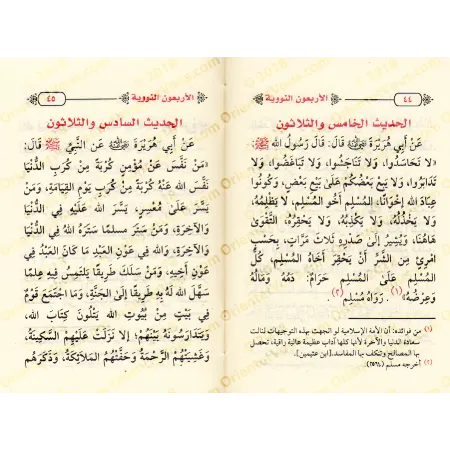 ٤٤
الأربعون النووية
الحديث الخامس والثلاثون
عَنْ أَبِي هُرَيْرَةَ ﵁ قَالَ: قَالَ رَسُولُ اللهِ ﷺ:
«لَا تَحَاسَدُوا، وَلَا تَنَاجَشُوا، وَلَا تَبَاغَضُوا، وَلَا
تَدَابَرُوا، وَلَا يَبِعْ بَعْضُكُمْ عَلَىٰ بَيْعِ بَعْضٍ، وَكُونُوا
عِبَادَ اللهِ إِخْوَانًا، الْمُسْلِمُ أَخُو الْمُسْلِمِ، لَا يَظْلِمُهُ،
وَلَا يَخْذُلُهُ، وَلَا يَكْذِبُهُ، وَلَا يَحْقِرُهُ، التَّقْوَىٰ
هَاهُنَا، وَيُشِيرُ إِلَىٰ صَدْرِهِ ثَلَاثَ مَرَّاتٍ، بِحَسْبِ
امْرِئٍ مِنَ الشَّرِّ أَنْ يَحْقِرَ أَخَاهُ الْمُسْلِمَ، كُلُّ
الْمُسْلِمِ عَلَىٰ الْمُسْلِمِ حَرَامٌ: دَمُهُ وَمَالُهُ
وَعِرْضُهُ»(١). رَوَاهُ مُسْلِمٌ(٢).
(١) من فوائده: أن الأمة الإسلامية لو اتجهت بهذه التوجيهات لنالت
سعادة الدنيا والآخرة لأنها كلها آداب عظيمة عالية راقية، تحصل
بها المصالح وتنكف بها المفاسد. [ابن عثيمين].
(٢) أخرجه مسلم (٢٥٦٤).
الأربعون النووية
٤٥
الحديث السادس والثلاثون
عَنْ أَبِي هُرَيْرَةَ ﵁ عَنِ النَّبِيِّ ﷺ قَالَ:
«مَنْ نَفَّسَ عَنْ مُؤْمِنٍ كُرْبَةً مِنْ كُرَبِ الدُّنْيَا
نَفَّسَ اللهُ عَنْهُ كُرْبَةً مِنْ كُرَبِ يَوْمِ الْقِيَامَةِ، وَمَنْ
يَسَّرَ عَلَىٰ مُعْسِرٍ، يَسَّرَ اللهُ عَلَيْهِ فِي الدُّنْيَا
وَالْآخِرَةِ، وَمَنْ سَتَرَ مسلما سَتَرَهُ اللهُ فِي الدُّنْيَا
وَالْآخِرَةِ، وَاللهُ فِي عَوْنِ الْعَبْدِ مَا كَانَ الْعَبْدُ فِي
عَوْنِ أَخِيهِ، وَمَنْ سَلَكَ طَرِيقًا يَلْتَمِسُ فِيهِ عِلْمًا
سَهَّلَ اللهُ لَهُ بِهِ طَرِيقًا إِلَىٰ الْجَنَّةِ، وَمَا اجْتَمَعَ قَوْمٌ
فِي بَيْتٍ مِنْ بُيُوتِ اللهِ يَتْلُونَ كِتَابَ اللهِ،
وَيَتَدَارَسُونَهُ بَيْنَهُمْ؛ إلا نَزَلَتْ عَلَيْهِمُ السَّكِينَةُ،
وَغَشِيَتْهُمُ الرَّحْمَةُ وَحَفَّتْهُمُ الْمَلَائِكَةُ، وَذَكَرَهُم